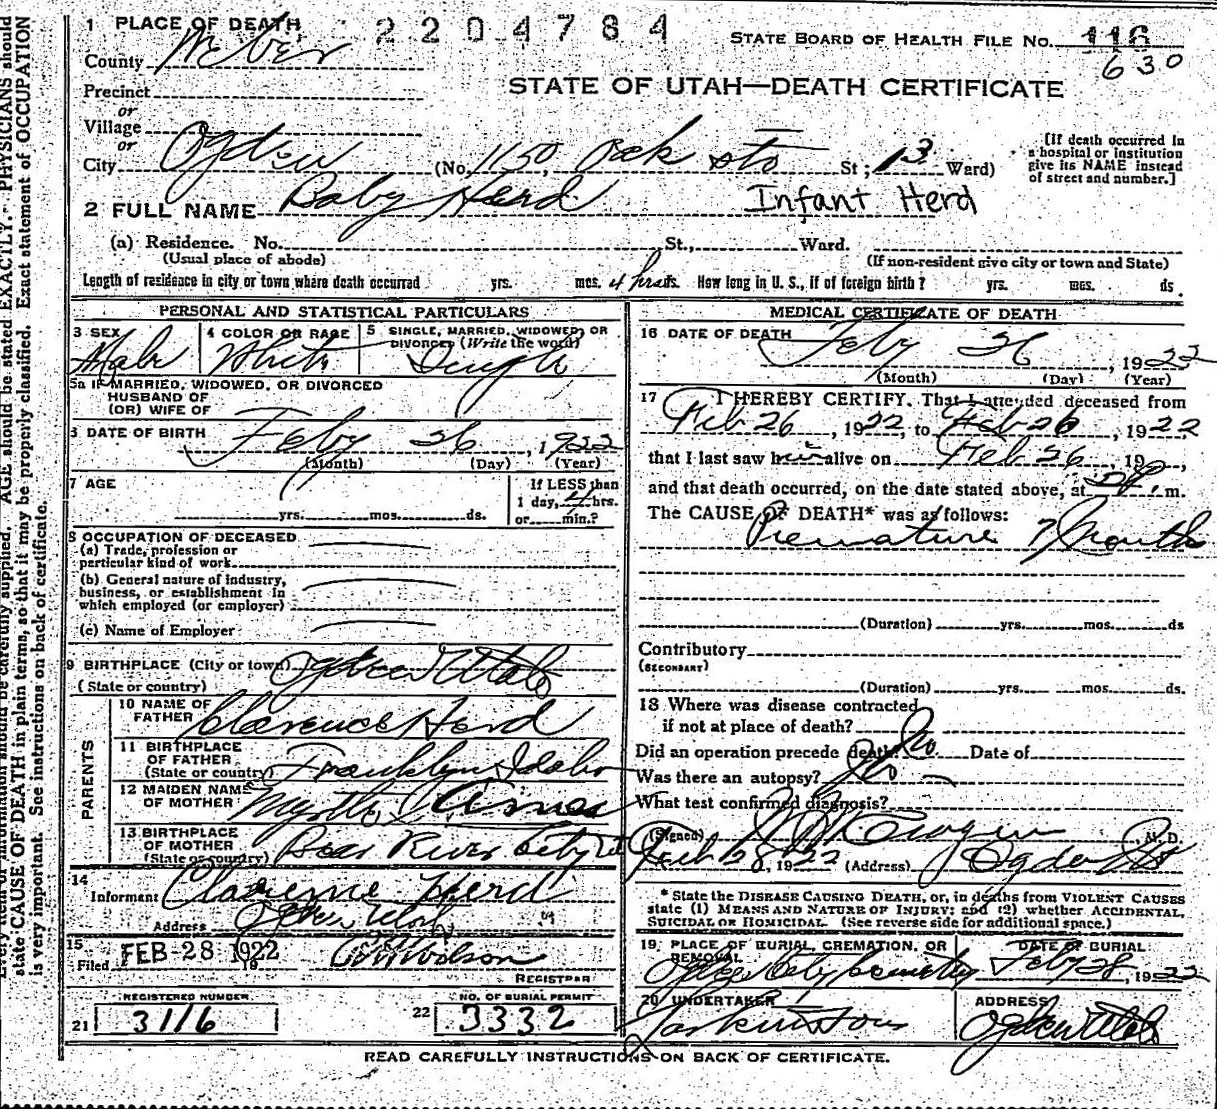 1 PLACE OF DEATH 2204784 STATE BOARD OF HEALTH FILE No. 116
County Weber 630
STATE OF UTAH—DEATH CERTIFICATE
Precinct
or
Village
or
City Ogden (No. 1150, St; 13 Ward)
[If death occurred in
a hospital or institution
give its NAME instead
of street and number.]
2 FULL NAME Baby Herd Infant Herd
(a) Residence. No. St., Ward.
(Usual place of abode) (If non-resident give city or town and State)
Length of residence in city or town where death occurred yrs. mos. 4 hrs ds. How long in U. S., if of foreign birth? yrs. mos. ds.
PERSONAL AND STATISTICAL PARTICULARS
3 SEX Male
4 COLOR OR RACE White
5 SINGLE, MARRIED, WIDOWED, OR
DIVORCED (Write the word)
Single
5a IF MARRIED, WIDOWED, OR DIVORCED
HUSBAND OF
(OR) WIFE OF
6 DATE OF BIRTH Feby 26, 1922
(Month) (Day) (Year)
7 AGE
yrs. mos. ds.
If LESS than
1 day, 4 hrs.
or min.?
8 OCCUPATION OF DECEASED
(a) Trade, profession or
particular kind of work
(b) General nature of industry,
business, or establishment in
which employed (or employer)
(c) Name of Employer
9 BIRTHPLACE (City or town) Ogden Utah
(State or country)
PARENTS
10 NAME OF
FATHER Clarence Herd
11 BIRTHPLACE
OF FATHER
(State or country) Franklyn Idaho
12 MAIDEN NAME
OF MOTHER Myrtle
13 BIRTHPLACE
OF MOTHER
(State or country) Bear River City Ut
14
Informant Clarence Herd
Address Ogden Utah
15
Filed FEB-28 1922 Wilson
REGISTRAR
REGISTERED NUMBER
21 3116
NO. OF BURIAL PERMIT
22 3332
MEDICAL CERTIFICATE OF DEATH
16 DATE OF DEATH Feby 26, 1922
(Month) (Day) (Year)
17 I HEREBY CERTIFY. That I attended deceased from
Feb 26, 1922, to Feb 26, 1922
that I last saw him alive on Feb 26, 19
and that death occurred, on the date stated above, at m.
The CAUSE OF DEATH* was as follows:
Premature 7 Months
(Duration) yrs. mos. ds
Contributory
(SECONDARY)
(Duration) yrs. mos. ds.
18 Where was disease contracted
if not at place of death?
Did an operation precede death? No. Date of
Was there an autopsy? No
What test confirmed diagnosis?
(Signed) M. D.
Feb 28, 1922 (Address) Ogden Ut
* State the DISEASE CAUSING DEATH, or, in deaths from VIOLENT CAUSES
state (1) MEANS AND NATURE OF INJURY; and (2) whether ACCIDENTAL,
SUICIDAL or HOMICIDAL. (See reverse side for additional space.)
19 PLACE OF BURIAL, CREMATION, OR
REMOVAL
Ogden City Cemetery
DATE OF BURIAL
Feby 28, 1922
20 UNDERTAKER
Larkin & Sons
ADDRESS
Ogden Utah
READ CAREFULLY INSTRUCTIONS ON BACK OF CERTIFICATE.
AGE should be stated EXACTLY. PHYSICIANS should
state CAUSE OF DEATH in plain terms, so that it may be properly classified. Exact statement of OCCUPATION
is very important. See instructions on back of certificate.